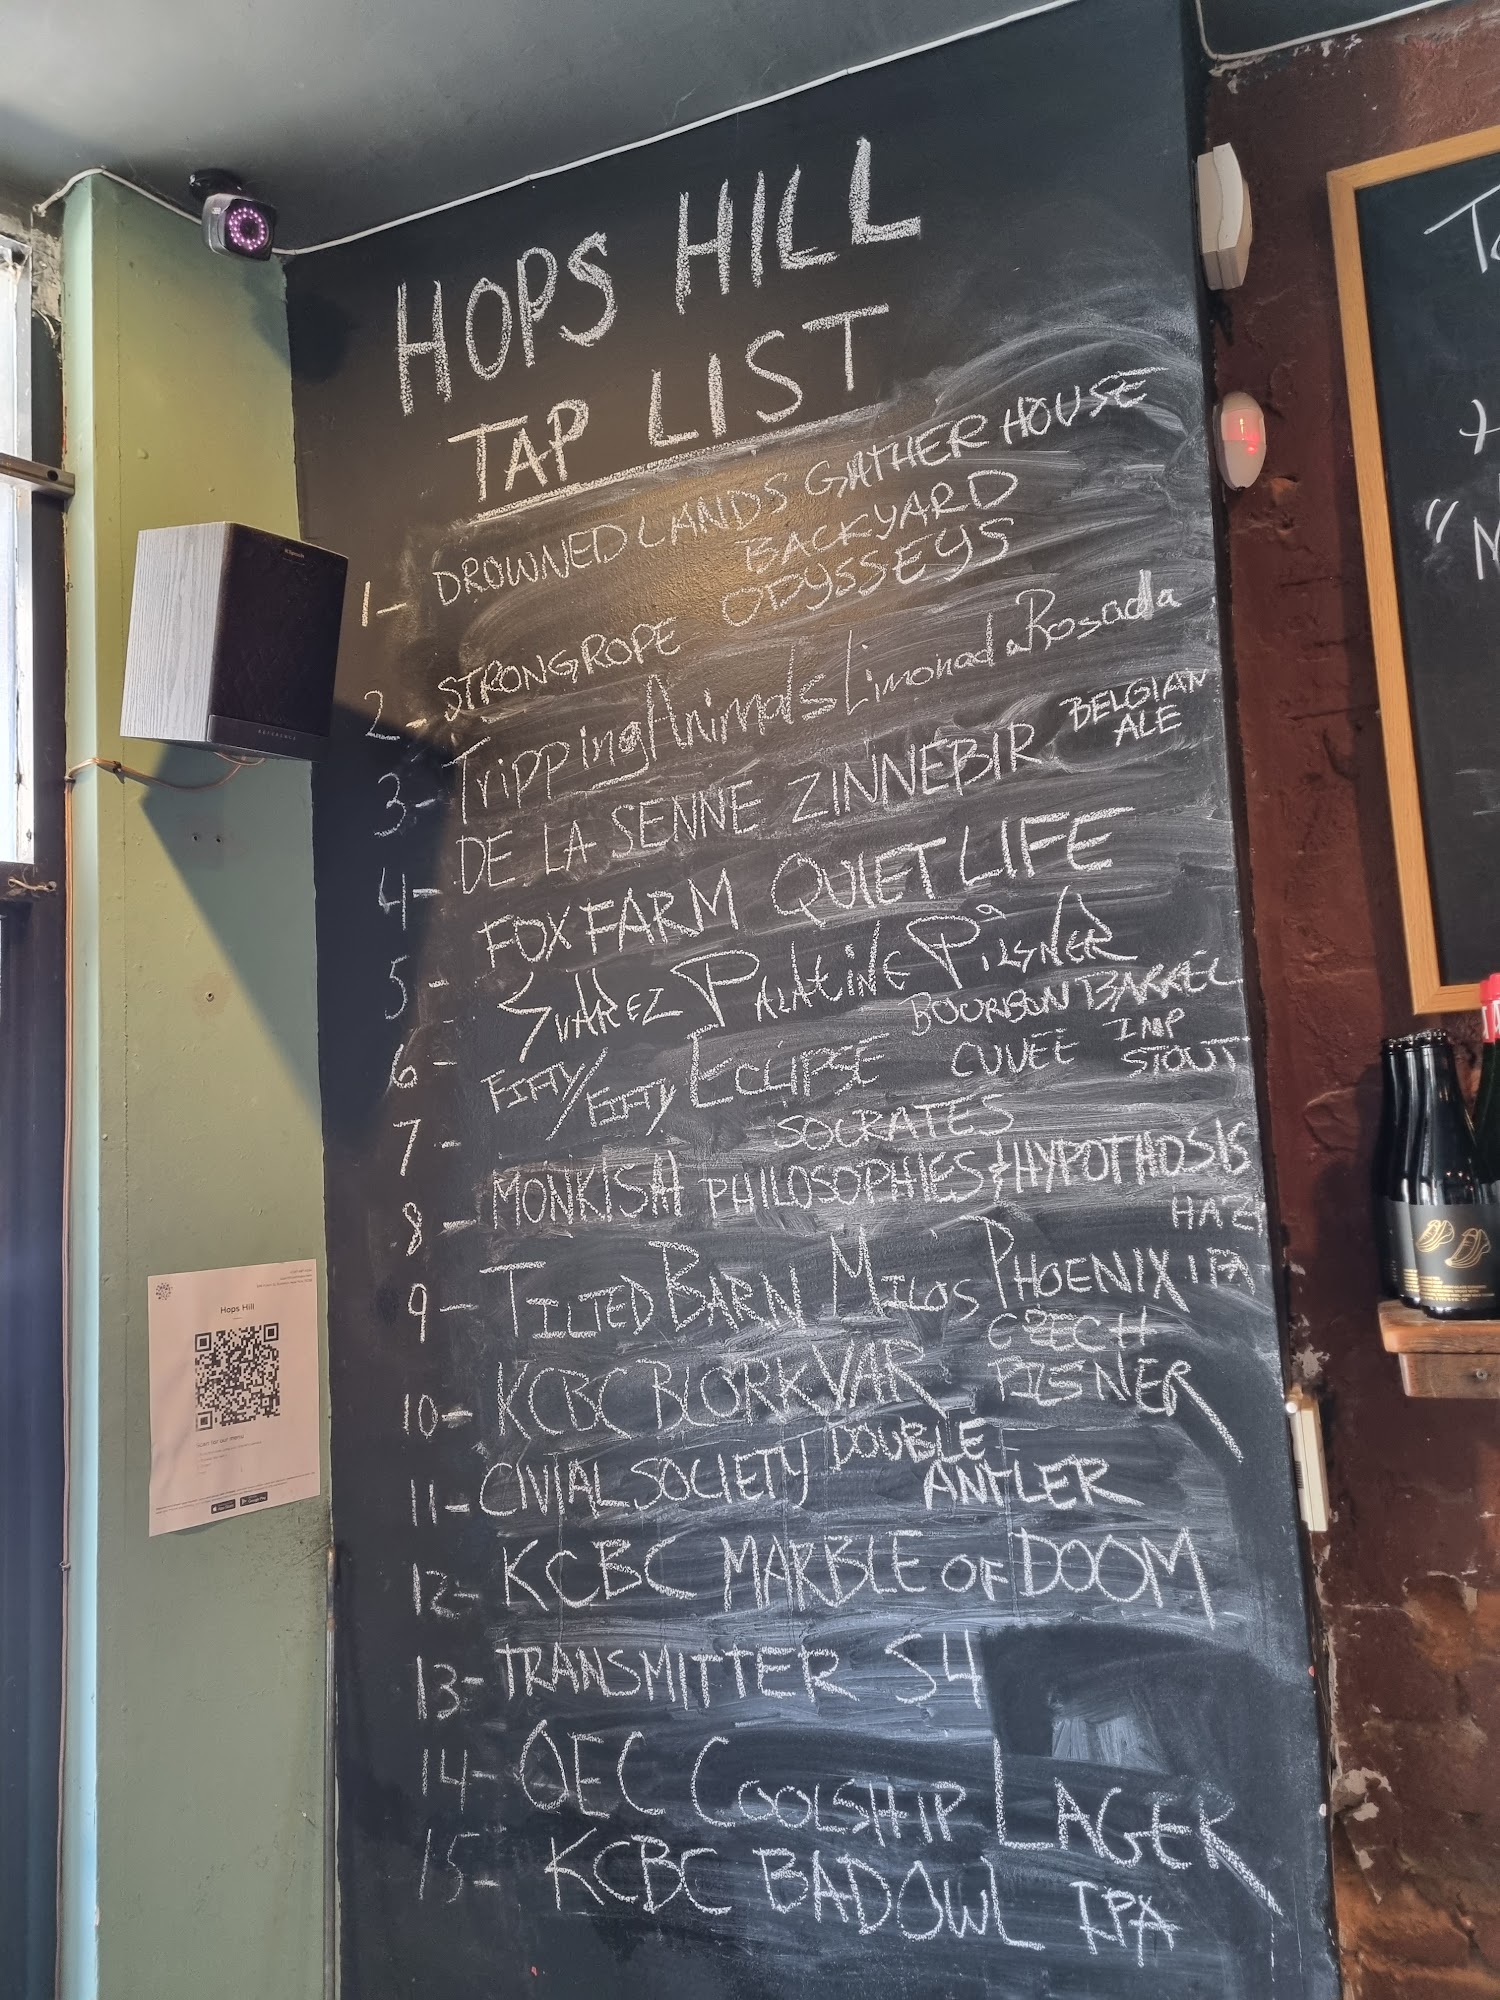 HOPS HILL
TAP LIST
1- DROWNED LANDS GATHER HOUSE
2- STRONG ROPE BACKYARD ODYSSEYS
3- Tripping Animals Limonada Rosada
4- DE LA SENNE ZINNEBIR BELGIAN ALE
5- FOX FARM QUIET LIFE
6- SUAREZ PALATINE PILSNER
7- FIFTY/FIFTY ECLIPSE BOURBON BARREL CUVEE IMP STOUT
8- MONKISH SOCRATES PHILOSOPHIES & HYPOTHOSIS
9- TILTED BARN MILOS PHOENIX HAZY IPA
10- KCBC BLORKVAR CZECH PILSNER
11- CIVIAL SOCIETY DOUBLE ANTLER
12- KCBC MARBLE OF DOOM
13- TRANSMITTER S4
14- OEC COOLSHIP LAGER
15- KCBC BAD OWL IPA
Klipsch
REFERENCE
Hops Hill
Scan for our menu
Google Play